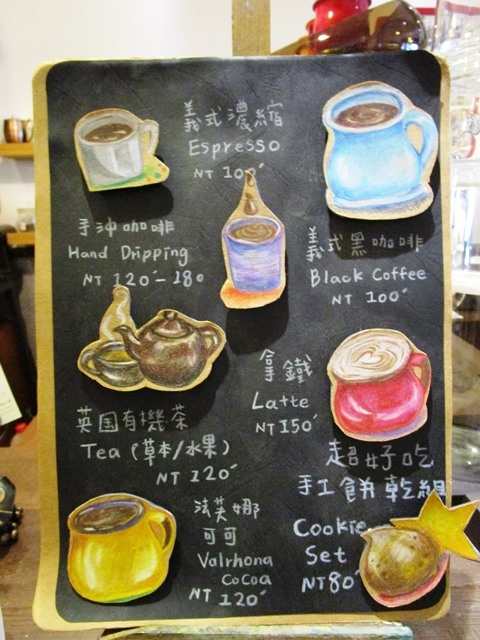 義式濃縮
Espresso
NT 100
手沖咖啡
Hand Dripping
NT 120-180
義式黑咖啡
Black Coffee
NT 100
英国有機茶
Tea (草本/水果)
NT 120
拿鐵
Latte
NT 150
法芙娜
可可
Valrhona
Cocoa
NT 120
超好吃
手工餅乾組
Cookie
Set
NT 80